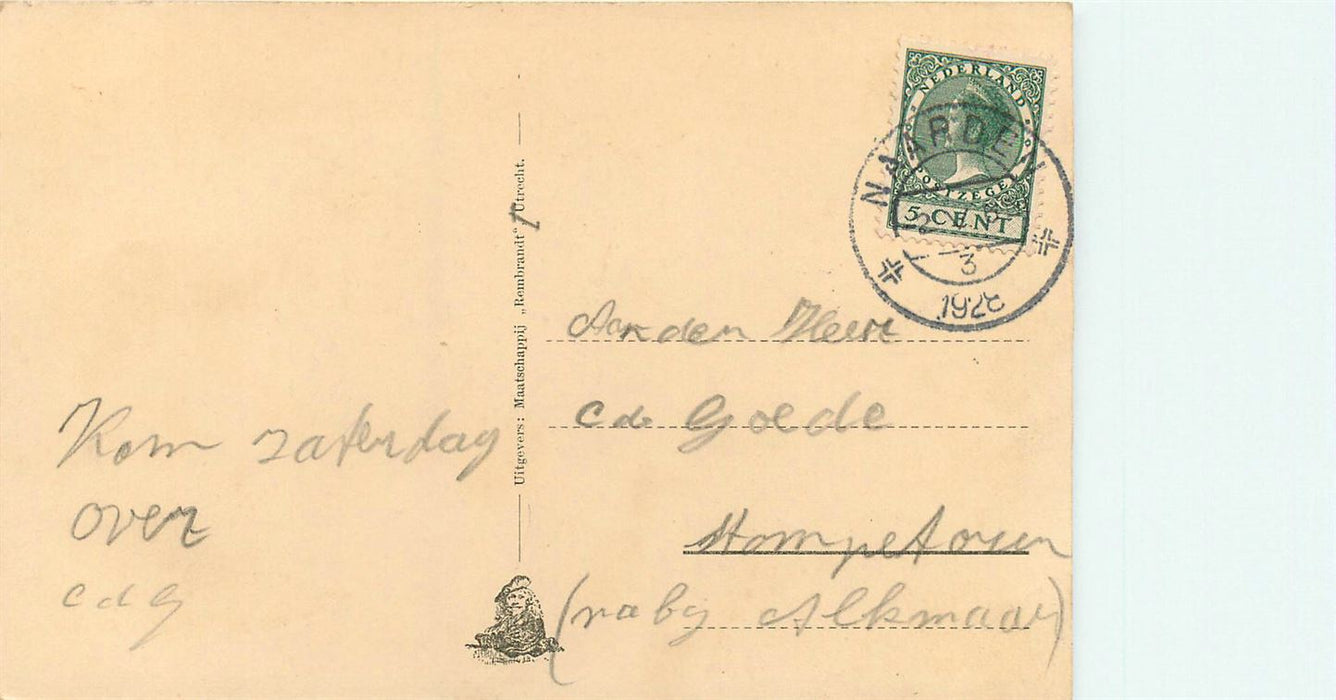 Kom zaterdag
over
c d G
Uitgevers: Maatschappij „Rembrandt" Utrecht.
NEDERLAND
POSTZEGEL
5 CENT
NAARDEN
3
1928
Aan den Heer
C de Goede
Stompetoren
(nabij Alkmaar)